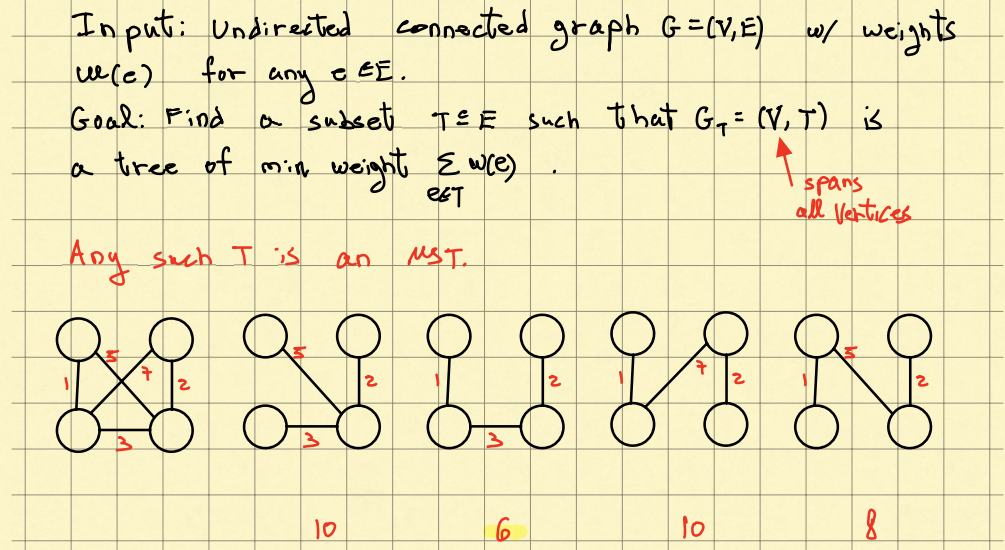 Input: Undirected connected graph G=(V,E) w/ weights
w(e) for any e∈E.
Goal: Find a subset T⊆E such that G_T = (V, T) is
a tree of min weight Σ w(e) .
e∈T
spans
all vertices
Any such T is an MST.
5 7 1 2 3
5 2 3
1 2 3
1 7 2
5 1 2
10 6 10 8